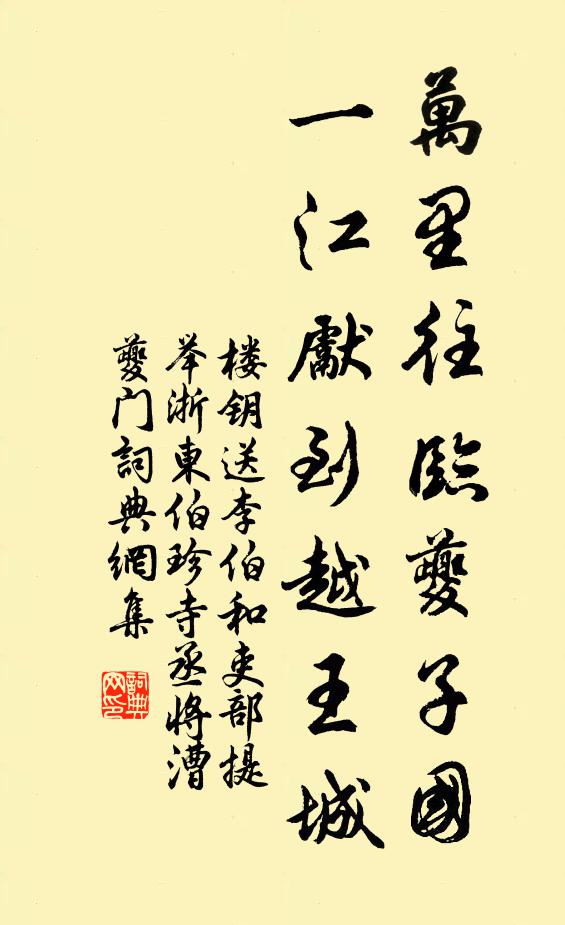 萬里往臨夔子國
一江獻到越王城
楼钥送李伯和吏部提
举浙東伯珍寺丞将漕
夔门詞典網集
詞典
网印